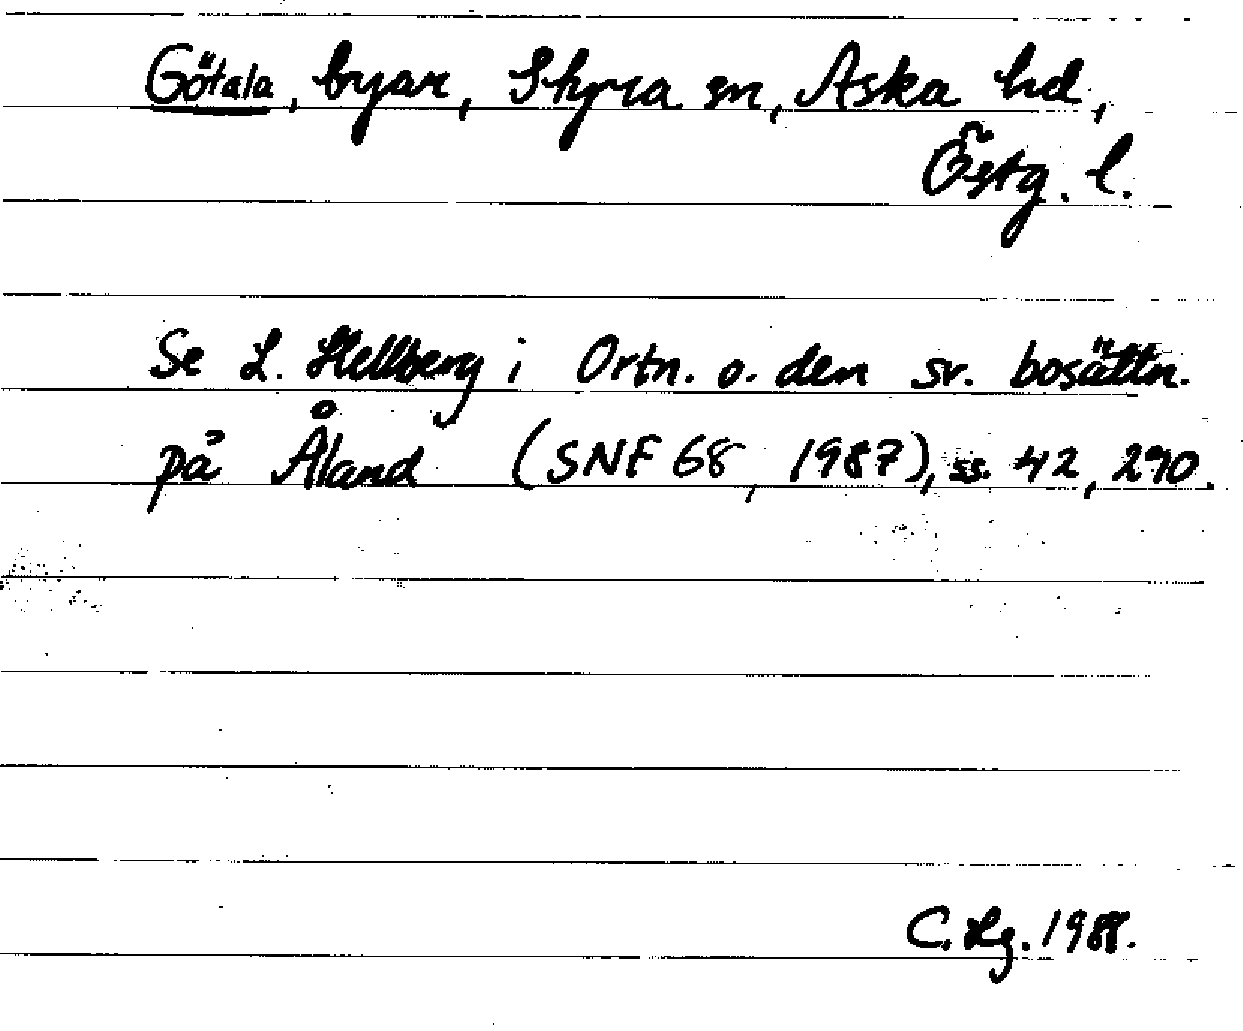 Götala, byar, Styra sn, Aska hd,
Östg. l.
Se L. Hellberg i Ortn. o. den sv. bosättn.
på Åland (SNF 68, 1987), ss. 42, 290.
C. Lg. 1988.